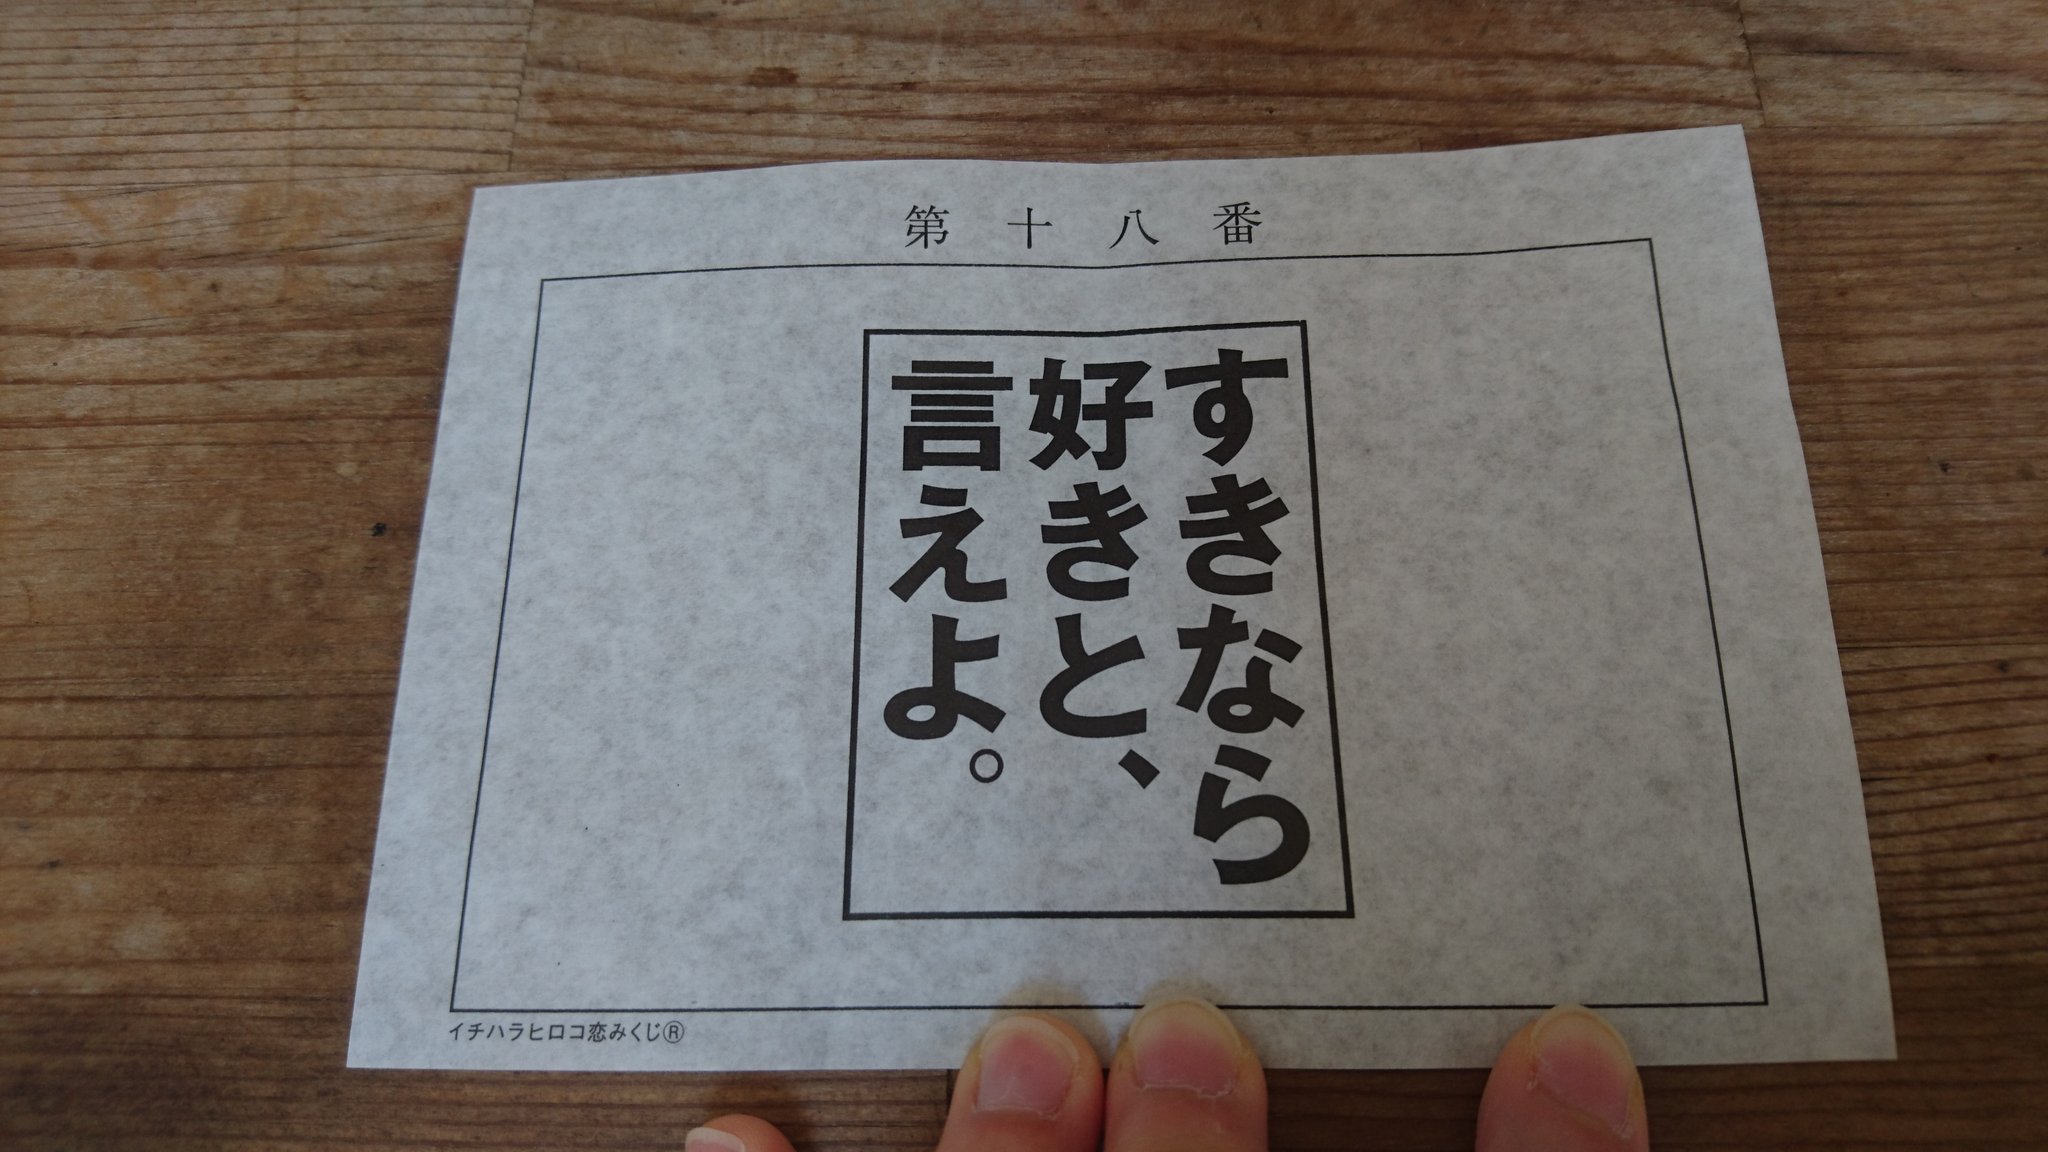 第十八番
すきなら
好きと、
言えよ。
イチハラヒロコ恋みくじ®